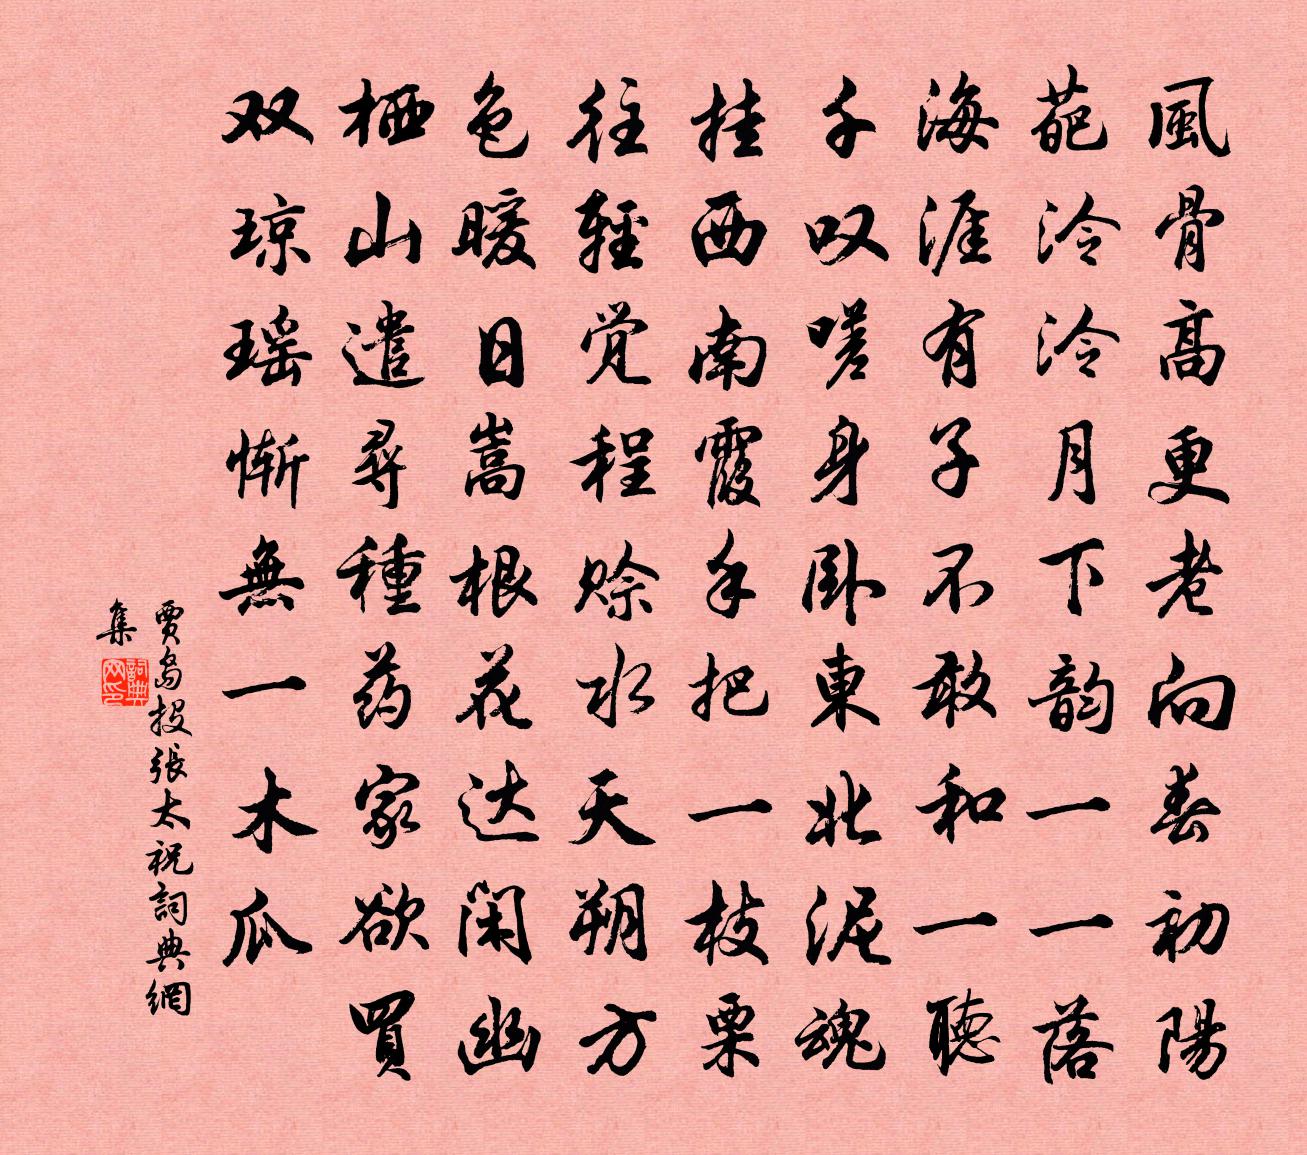 風骨高更老向春初陽
葩泠泠月下韵一一落
海涯有子不敢和一聽
千叹嗟身卧東北泥魂
挂西南霞手把一枝栗
往輕觉程赊水天朔方
色暖日嵩根花达閑幽
栖山遣尋種药家欲買
双琼瑶慚無一木瓜
賈島投張太祝詞典網
集
詞典网印